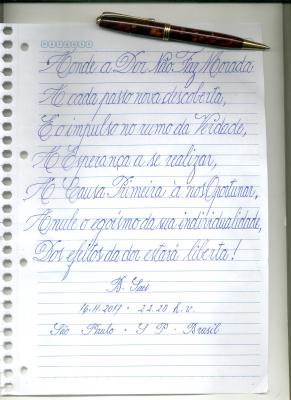 Aonde a Dor Não Faz Morada:
A cada passo nova descoberta,
É o impulso no rumo da Verdade,
A Esperança a se realizar,
A Causa Primeira à nos Oportunar,
Anule o egoísmo da sua individualidade,
Dos efeitos da dor estará liberta!
16.11.2017 - 22.20 h.v.
São Paulo - SP - Brasil